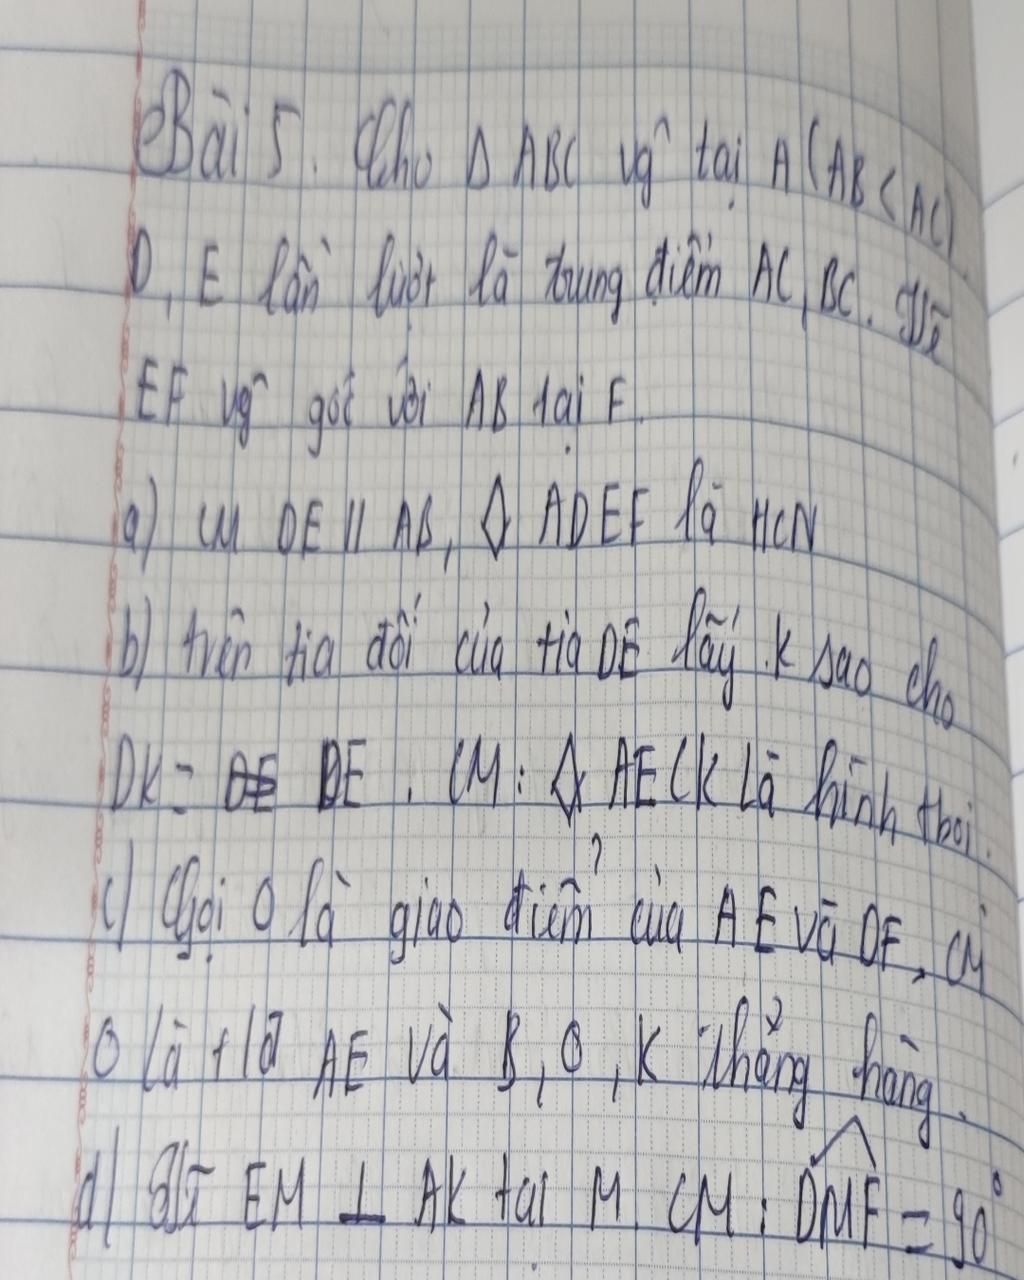 Bài 5. Cho Δ ABC vĝ tại A (AB < AC)
D, E lần lượt là trung điểm AC, BC. Vẽ
EF vĝ góc với AB tại F.
a) CM DE // AB, ◊ ADEF là HCN
b) trên tia đối của tia DE lấy K sao cho
DK = DE. CM: ◊ AECK Là hình thoi.
c) Gọi O là giao điểm của AE và DF, CM
O là tđ AE và B, O, K thẳng hàng.
d) Vẽ EM ⊥ AK tại M CM: DMF = 90°